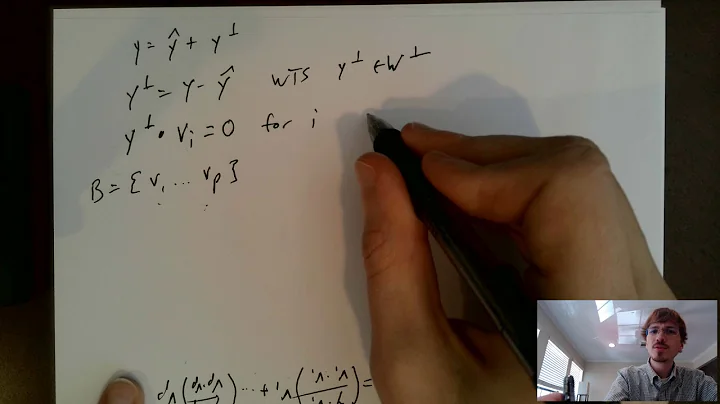 y = ŷ + y^⊥
y^⊥ = y - ŷ WTS y^⊥ ∈ W^⊥
y^⊥ · v_i = 0 for i
B = { v_1 ... v_p }